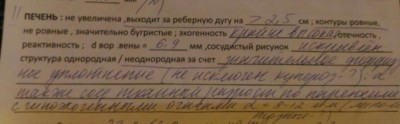 ПЕЧЕНЬ: не увеличена, выходит за реберную дугу на 2,5 см; контуры ровные,
не ровные, значительно бугристые; эхогенность крайне высокая, точечность,
реактивность; d вор.вены = 6.9 мм, сосудистый рисунок искривлен
структура однородная / неоднородная за счет значительное
ное уплотнение (не исключен цирроз-?)-а
также сосе тканей по паренхиме
с гипоэхогенными очагами d = 8-12 мм